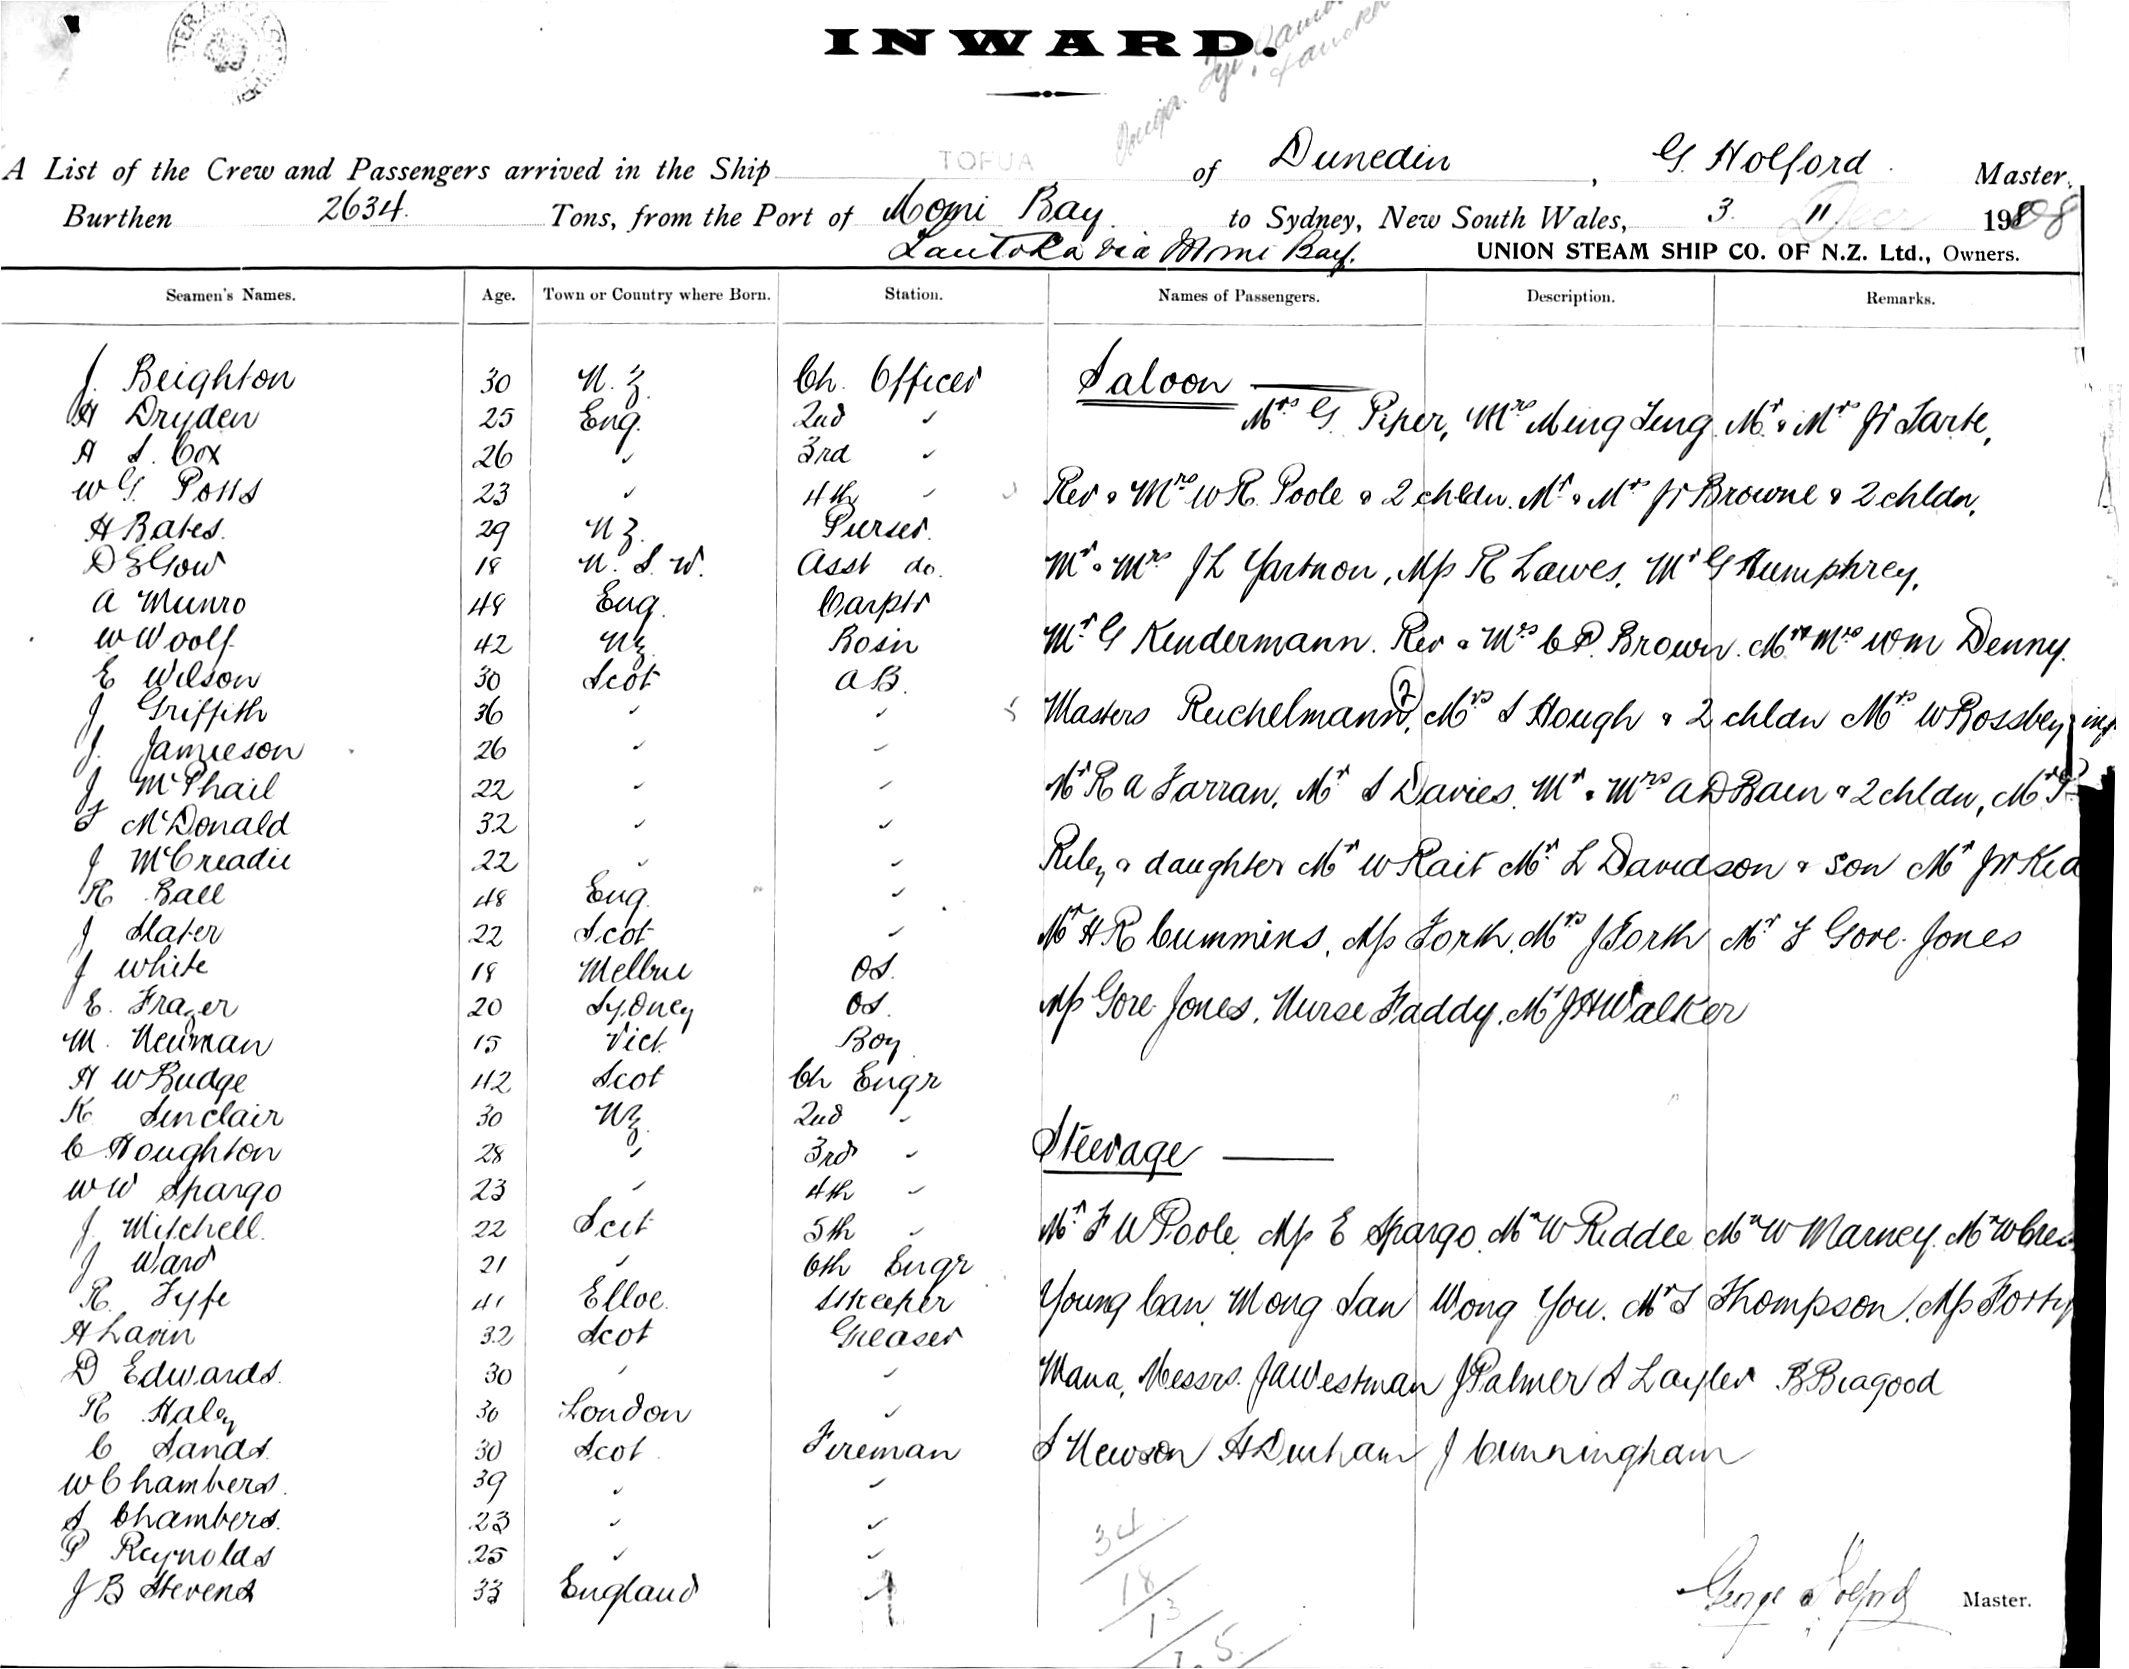 INWARD.
A List of the Crew and Passengers arrived in the Ship TOFUA of Dunedin, G. Holford Master,
Burthen 2634 Tons, from the Port of Momi Bay to Sydney, New South Wales, 3. 11 Dec 1908
Lautoka via Momi Bay. UNION STEAM SHIP CO. OF N.Z. Ltd., Owners.
Seamen's Names. Age. Town or Country where Born. Station. Names of Passengers. Description. Remarks.
J. Beighton 30 N.Z. Ch. Officer
H Dryden 25 Eng. 2nd "
A S. Cox 26 " 3rd "
W G. Potts 23 " 4th "
H Bates. 29 NZ. Purser.
D E Gow 18 N.S.W. Asst do.
A Munro 48 Eng. Carptr
W Woolf 42 NZ Bosn
E Wilson 30 Scot AB.
J Griffith 36 " "
J. Jamieson 26 " "
J McPhail 22 " "
McDonald 32 " "
J McCreadie 22 " "
R. Ball 48 Eng. "
J Slater 22 Scot "
J White 18 Melbne OS.
E. Frazer 20 Sydney OS.
M. Neuman 15 Vict. Boy
H W Budge 42 Scot Ch Engr
K. Sinclair 30 NZ. 2nd "
C Houghton 28 " 3rd "
W W Spargo 23 " 4th "
J. Mitchell. 22 Scot 5th "
J Ward 21 " 6th Engr
R. Fyfe 41 Storekeeper
H Lavin 32 Scot Greaser
D Edwards. 30 " "
R Haley 30 London "
C Sands. 30 Scot Fireman
W Chambers. 39 " "
S Chambers. 23 " "
P Reynolds 25 " "
J B Stevens 33 England "
Saloon
Mrs G. Piper, Mrs Ming Ting, Mr & Mrs JW Tarte,
Rev & Mrs W R. Poole & 2 chldn. Mr & Mrs JW Browne & 2 chldn,
Mr & Mrs J L, Miss R Lawes, Mr G Humphrey,
Mr G Kindermann. Rev & Mrs C P. Brown. Mr & Mrs Wm Denny.
Masters Reichelmann (2), Mrs S Hough & 2 chldn Mrs W Rossbey & inf
Mr R A Farran, Mr S Davies, Mr & Mrs A D Bain & 2 chldn, Mr T
Riley & daughter Mr W Rait Mr L Davidson & son Mr JW
Mr H R Cummins, Miss Forth, Mrs J Forth Mr F Gore-Jones
Miss Gore-Jones, Nurse Faddy, Mr J H Walker
Steerage
Mr F W Poole, Miss E Spargo, Mr W Riddle Mr W Marney, Mr W
Young Can, Wong San Wong You. Mr S Thompson, Miss Forty
Mana, Messrs. J A Westman J Palmer S Layler B Beagood
S Newson H Durham J Cunningham
34
18
13
George Holford Master.